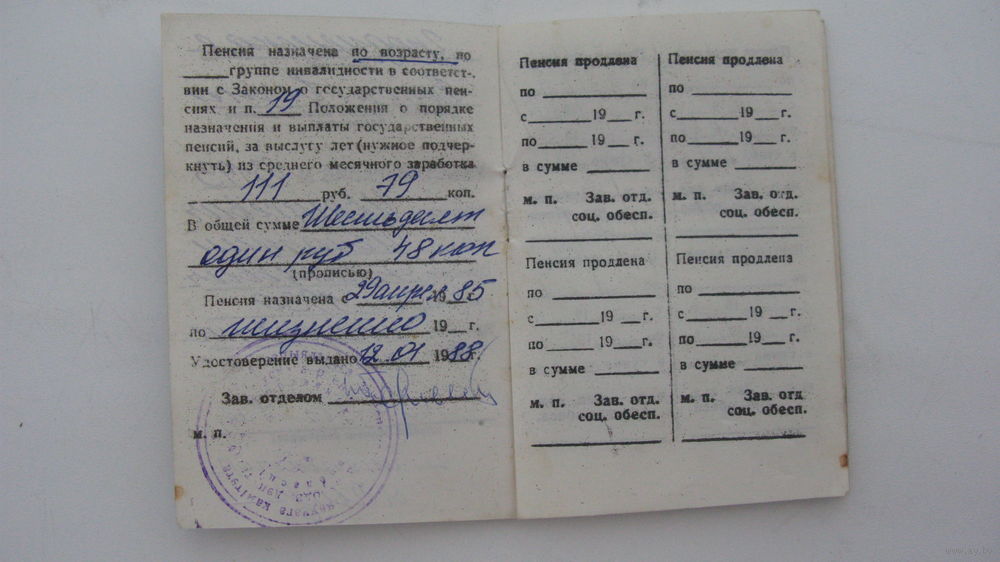 Пенсия назначена по возрасту, по
____группе инвалидности в соответст-
вии с Законом о государственных пен-
сиях и п. 19 Положения о порядке
назначения и выплаты государственных
пенсий, за выслугу лет (нужное подчер-
кнуть) из среднего месячного заработка
111 руб. 79 коп.
В общей сумме Шестьдесят
один руб 48 коп
(прописью)
Пенсия назначена с 29 апреля 1985
по пожизненно 19__г.
Удостоверение выдано 12.01 1988г.
Зав. отделом
м. п.
Пенсия продлена
по
с ____ 19__г.
по ____ 19__г.
в сумме
м. п. Зав. отд.
соц. обесп.
Пенсия продлена
по
с ____ 19__г.
по ____ 19__г.
в сумме
м. п. Зав. отд.
соц. обесп.
Пенсия продлена
по
с ____ 19__г.
по ____ 19__г.
в сумме
м. п. Зав. отд.
соц. обесп.
Пенсия продлена
по
с ____ 19__г.
по ____ 19__г.
в сумме
м. п. Зав. отд
соц. обесп.
www.ay.by